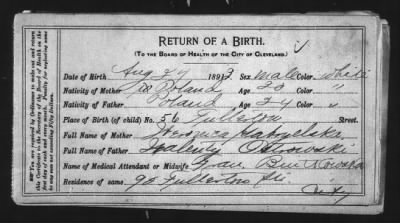 RETURN OF A BIRTH.
(TO THE BOARD OF HEALTH OF THE CITY OF CLEVELAND.)
Date of Birth Aug 27 1893 Sex, male Color, white
Nativity of Mother Poland Age 30 Color "
Nativity of Father Poland Age 34 Color "
Place of Birth (of child) No. 56 Fullerton Street.
Full Name of Mother Veronica
Full Name of Father Walenty Ostrowski
Name of Medical Attendant or Midwife,
Residence of same, 90 Fullerton St.
City
You are required by Ordinance to make out and return this Certificate to the Secretary of the Board of Health on the day of each and every month. Penalty for neglecting same